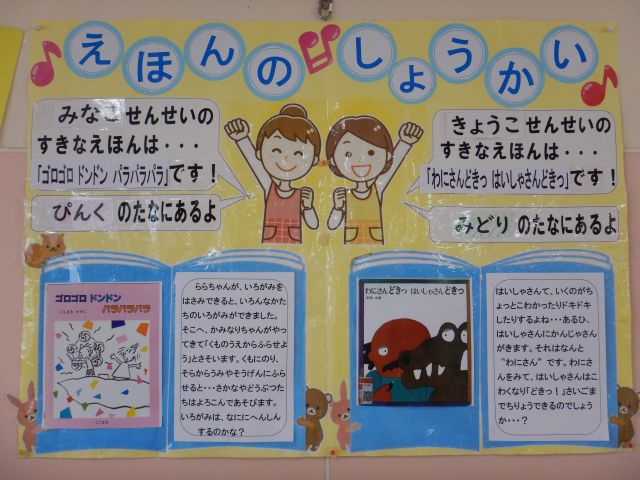 えほんのしょうかい
みなこ せんせいの
すきなえほんは・・・
「ゴロゴロ ドンドン パラパラパラ」です！
ぴんく のたなにあるよ
きょうこ せんせいの
すきなえほんは・・・
「わにさんどきっ はいしゃさんどきっ」です！
みどり のたなにあるよ
ゴロゴロ ドンドン
パラパラパラ
ららちゃんが、いろがみを
はさみできると、いろんなかた
ちのいろがみができました。
そこへ、かみなりちゃんがやっ
てきて「くものうえからふらせよ
う」とさそいます。くもにのり、
そらからうみやそうげんにふら
せると・・・さかなやどうぶつた
ちはよろこんであそびます。
いろがみは、なににへんしん
するのかな？
わにさんどきっ はいしゃさんどきっ
はいしゃさんて、いくのがち
ょっとこわかったりドキドキ
したりするよね・・・あるひ、
はいしゃさんにかんじゃさん
がきます。それはなんと
“わにさん”です。わにさ
んをみて、はいしゃさんはこ
わくなり「どきっ！」さいごま
でちりょうできるのでしょう
か・・・？